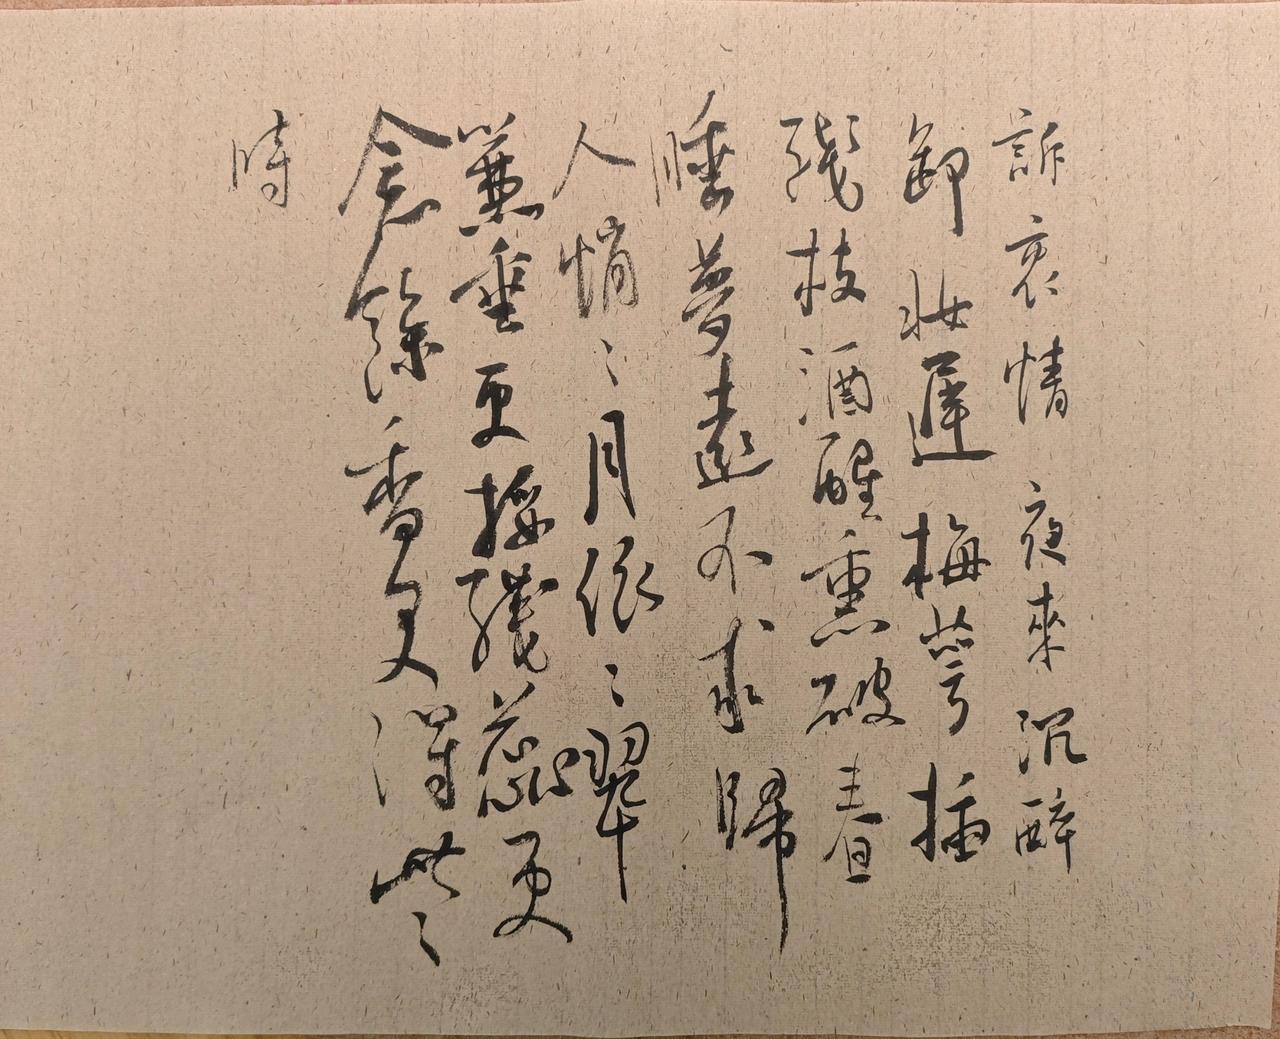 訴衷情 夜來沉醉
卸妆遲梅萼插
殘枝酒醒熏破春
睡夢遠不成歸
人悄〻月依〻翠
簾垂更挼殘蕊更
念餘香更得些
時